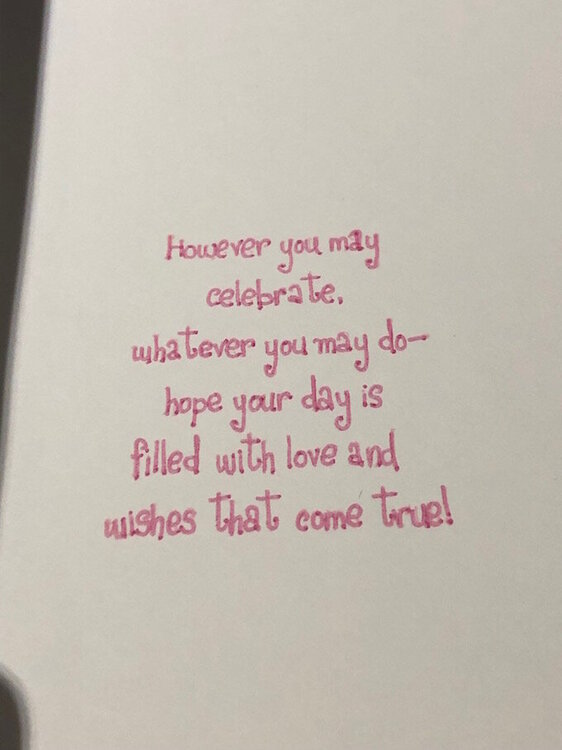 However you may
celebrate,
whatever you may do—
hope your day is
filled with love and
wishes that come true!